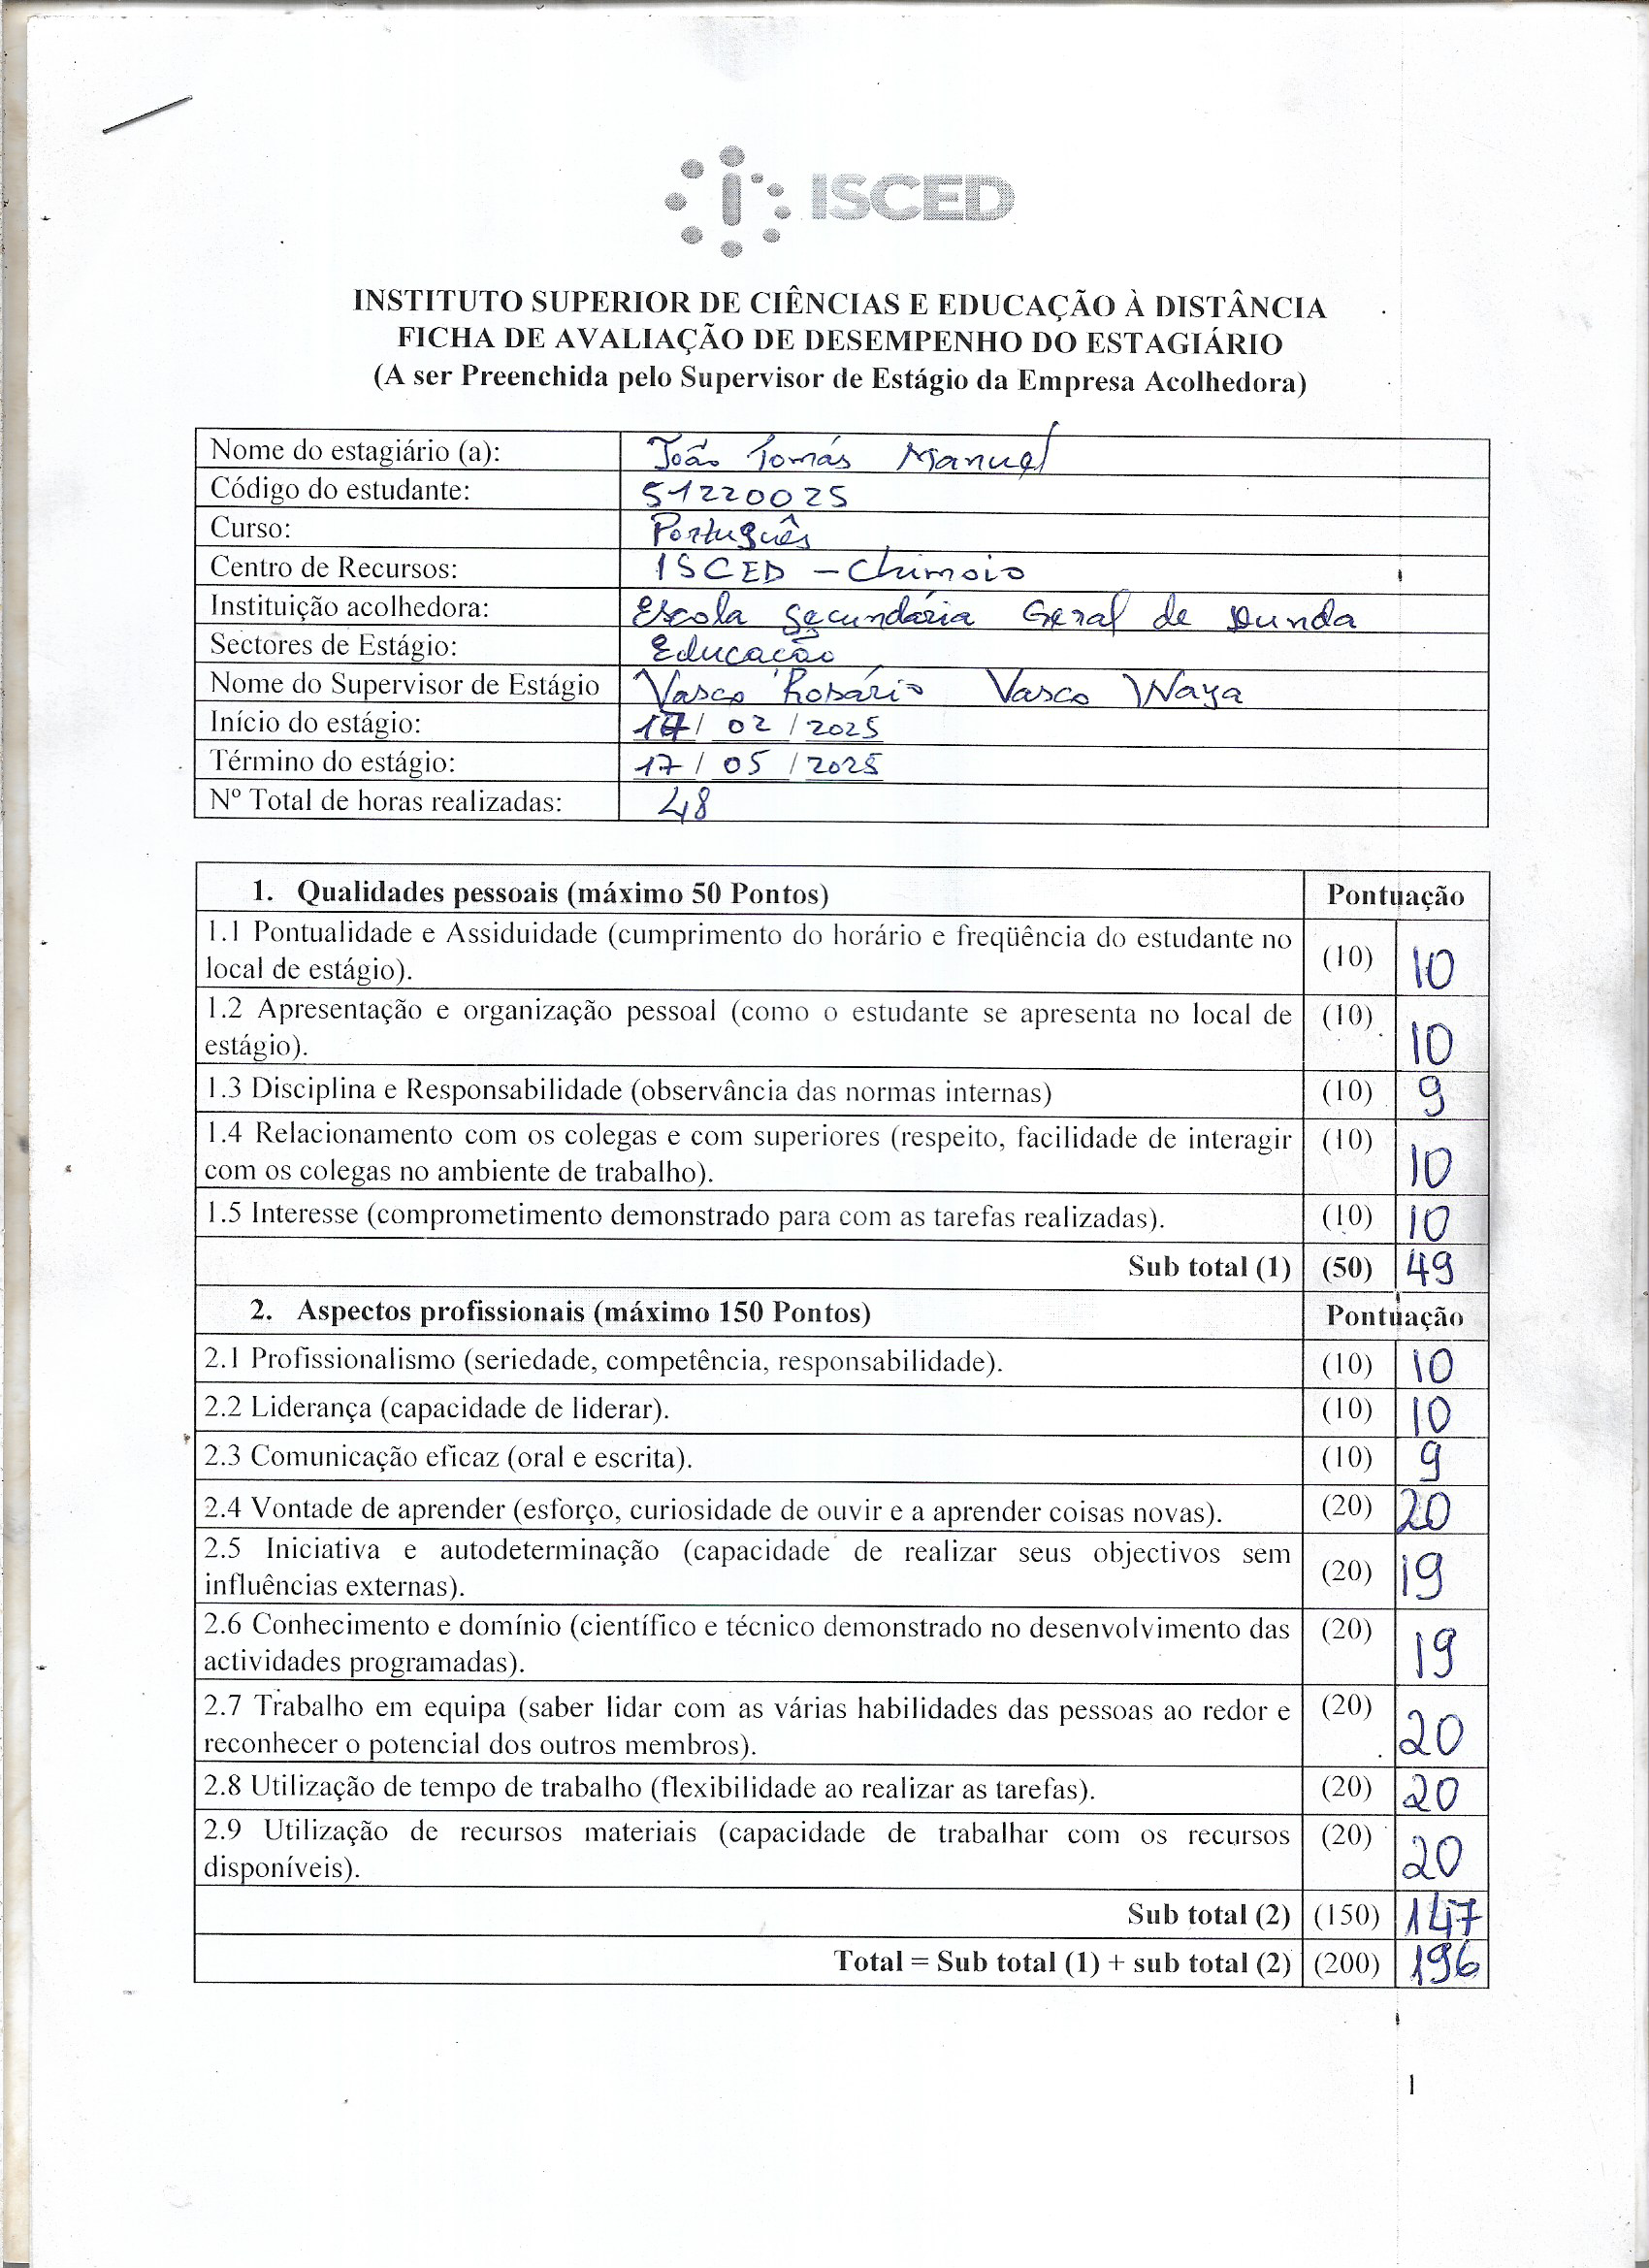 ISCED
INSTITUTO SUPERIOR DE CIÊNCIAS E EDUCAÇÃO À DISTÂNCIA
FICHA DE AVALIAÇÃO DE DESEMPENHO DO ESTAGIÁRIO
(A ser Preenchida pelo Supervisor de Estágio da Empresa Acolhedora)
Nome do estagiário (a): João Tomás Manuel
Código do estudante: 51220025
Curso: Português
Centro de Recursos: ISCED - Chimoio
Instituição acolhedora: Escola Secundária Geral de Dunda
Sectores de Estágio: Educação
Nome do Supervisor de Estágio Vasco Rosário Vasco Waya
Início do estágio: 17 / 02 / 2025
Término do estágio: 17 / 05 / 2025
Nº Total de horas realizadas: 48
1. Qualidades pessoais (máximo 50 Pontos) Pontuação
1.1 Pontualidade e Assiduidade (cumprimento do horário e freqüência do estudante no
local de estágio). (10) 10
1.2 Apresentação e organização pessoal (como o estudante se apresenta no local de
estágio). (10) 10
1.3 Disciplina e Responsabilidade (observância das normas internas) (10) 9
1.4 Relacionamento com os colegas e com superiores (respeito, facilidade de interagir
com os colegas no ambiente de trabalho). (10) 10
1.5 Interesse (comprometimento demonstrado para com as tarefas realizadas). (10) 10
Sub total (1) (50) 49
2. Aspectos profissionais (máximo 150 Pontos) Pontuação
2.1 Profissionalismo (seriedade, competência, responsabilidade). (10) 10
2.2 Liderança (capacidade de liderar). (10) 10
2.3 Comunicação eficaz (oral e escrita). (10) 9
2.4 Vontade de aprender (esforço, curiosidade de ouvir e a aprender coisas novas). (20) 20
2.5 Iniciativa e autodeterminação (capacidade de realizar seus objectivos sem
influências externas). (20) 19
2.6 Conhecimento e domínio (científico e técnico demonstrado no desenvolvimento das
actividades programadas). (20) 19
2.7 Trabalho em equipa (saber lidar com as várias habilidades das pessoas ao redor e
reconhecer o potencial dos outros membros). (20) 20
2.8 Utilização de tempo de trabalho (flexibilidade ao realizar as tarefas). (20) 20
2.9 Utilização de recursos materiais (capacidade de trabalhar com os recursos
disponíveis). (20) 20
Sub total (2) (150) 147
Total = Sub total (1) + sub total (2) (200) 196
1